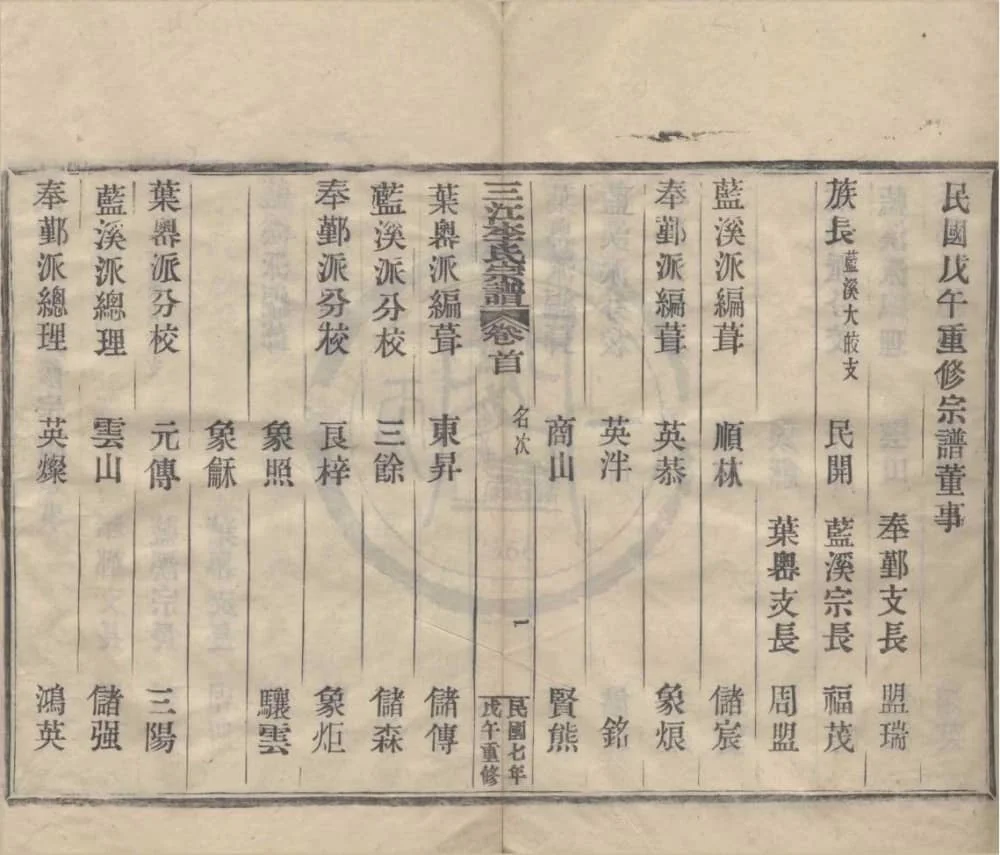 民國戊午重修宗譜董事
奉鄞支長 盟瑞
族長 藍溪大皎支 民開 藍溪宗長 福茂
葉嶴支長 周盟
藍溪派編葺 順林 儲宸
奉鄞派編葺 英恭 象烺
英泮 銘
商山 賢熊
三江李氏宗譜 卷首 名次 一 民國七年戊午重修
葉嶴派編葺 東昇 儲傳
藍溪派分校 三餘 儲森
奉鄞派分校 良梓 象炬
象照 驤雲
象龢
葉嶴派分校 元傳 三陽
藍溪派總理 雲山 儲强
奉鄞派總理 英燦 鴻英